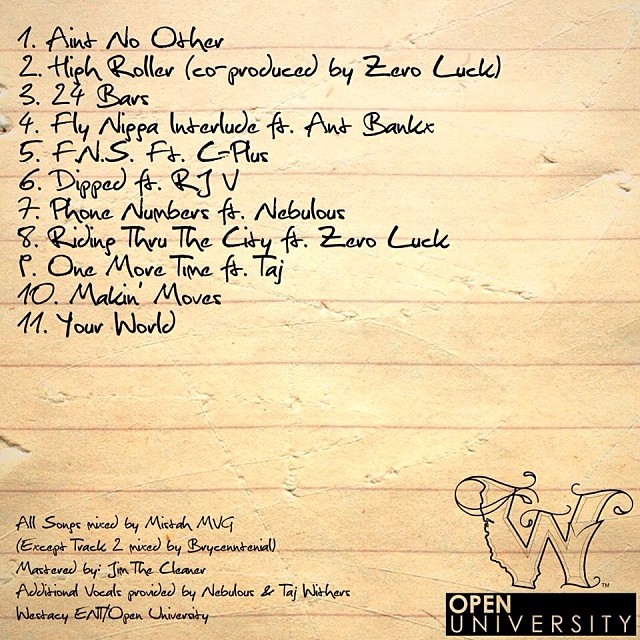 1. Aint No Other
2. High Roller (co-produced by Zero Luck)
3. 24 Bars
4. Fly Nigga Interlude ft. Ant Bankx
5. F.N.S. Ft. C-Plus
6. Dipped ft. RJ V
7. Phone Numbers ft. Nebulous
8. Riding Thru The City ft. Zero Luck
9. One More Time ft. Taj
10. Makin' Moves
11. Your World
All Songs mixed by Mistah MVG
(Except Track 2 mixed by Brycenntenial)
Mastered by: Jim The Cleaner
Additional Vocals provided by Nebulous & Taj Withers
Westacy ENT/Open University
W
TM
OPEN
UNIVERSITY